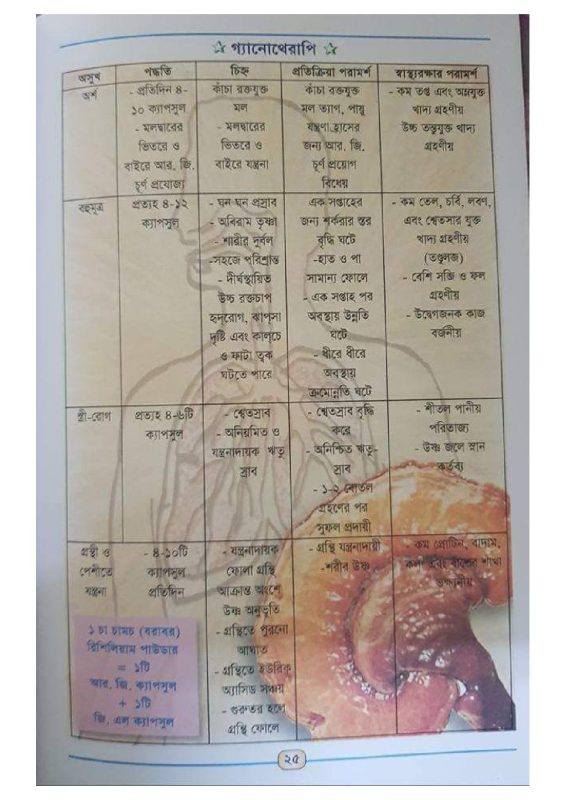 গ্যানোথেরাপি
অসুখ
পদ্ধতি
চিহ্ন
প্রতিক্রিয়া পরামর্শ
স্বাস্থ্যরক্ষার পরামর্শ
অর্শ
- প্রতিদিন ৪-
১০ ক্যাপসুল
- মলদ্বারের
ভিতরে ও
বাইরে আর. জি.
চূর্ণ প্রযোজ্য
কাঁচা রক্তযুক্ত
মল
- মলদ্বারের
ভিতরে ও
বাইরে যন্ত্রনা
কাঁচা রক্তযুক্ত
মল ত্যাগ, পায়ু
যন্ত্রণা হ্রাসের
জন্য আর. জি.
চূর্ণ প্রয়োগ
বিধেয়
- কম তপ্ত এবং অম্লযুক্ত
খাদ্য গ্রহণীয়
উচ্চ তন্তুযুক্ত খাদ্য
গ্রহণীয়
বহুমূত্র
প্রত্যহ ৪-১২
ক্যাপসুল
- ঘন ঘন প্রস্রাব
- অবিরাম তৃষ্ণা
- শারীর দুর্বল
-সহজে পরিশ্রান্ত
- দীর্ঘস্থায়িত
উচ্চ রক্তচাপ
হৃদরোগ, ঝাপসা
দৃষ্টি এবং কালচে
ও ফাটা ত্বক
ঘটতে পারে
এক সপ্তাহের
জন্য শর্করার স্তর
বৃদ্ধি ঘটে
-হাত ও পা
সামান্য ফোলে
- এক সপ্তাহ পর
অবস্থায় উন্নতি
ঘটে
- ধীরে ধীরে
অবস্থায়
ক্রমোন্নতি ঘটে
- কম তেল, চর্বি, লবণ,
এবং শ্বেতসার যুক্ত
খাদ্য গ্রহণীয়
(তণ্ডুলজ)
- বেশি সব্জি ও ফল
গ্রহণীয়
- উদ্বেগজনক কাজ
বর্জনীয়
স্ত্রী-রোগ
প্রত্যহ ৪-৬টি
ক্যাপসুল
- শ্বেতস্রাব
- অনিয়মিত ও
যন্ত্রনাদায়ক ঋতু
স্রাব
- শ্বেতস্রাব বৃদ্ধি
করে
- অনিশ্চিত ঋতু-
স্রাব
- ১-২ বোতল
গ্রহণের পর
সুফল প্রদায়ী
- শীতল পানীয়
পরিত্যজ্য
- উষ্ণ জলে স্নান
কর্তব্য
গ্রন্থী ও
পেশীতে
যন্ত্রনা
- ৪-১০টি
ক্যাপসুল
প্রতিদিন
- যন্ত্রনাদায়ক
ফোলা গ্রন্থি
আক্রান্ত অংশে
উষ্ণ অনুভূতি
- গ্রন্থিতে পুরনো
আঘাত
- গ্রন্থিতে ইউরিক
অ্যাসিড সঞ্চয়
- গুরুতর হলে
গ্রন্থি ফোলে
- গ্রন্থি যন্ত্রনাদায়ী
-শরীর উষ্ণ
- কম প্রোটিন, বাদাম,
কলা এবং বাঁশের শাখা
ভক্ষনীয়
১ চা চামচ (বরাবর)
রিশিলিয়াম পাউডার
= ১টি
আর. জি. ক্যাপসুল
+ ১টি
জি. এল ক্যাপসুল
২৫